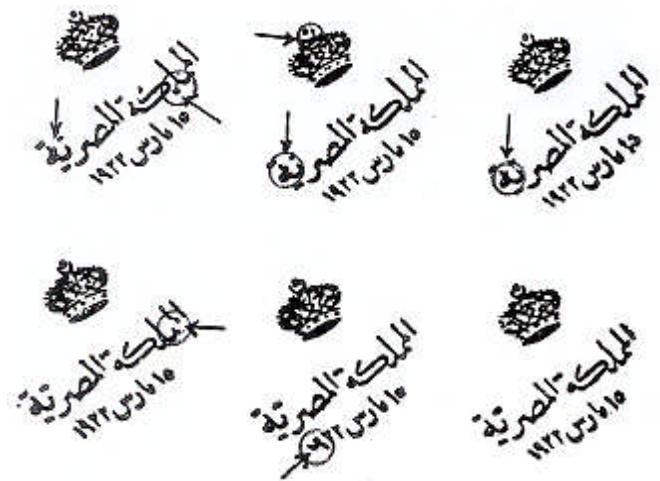 المملكة المصرية
١٥ مارس ١٩٢٢
المملكة المصرية
١٥ مارس ١٩٢٢
المملكة المصرية
١٥ مارس ١٩٢٢
المملكة المصرية
١٥ مارس ١٩٢٢
المملكة المصرية
١٥ مارس ١٩٢٢
المملكة المصرية
١٥ مارس ١٩٢٢